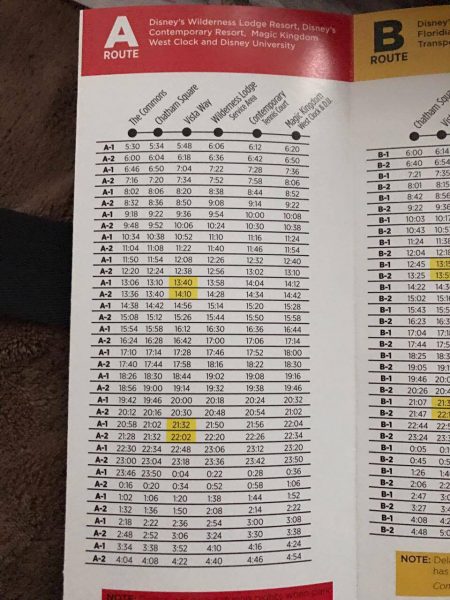 A
ROUTE
Disney's Wilderness Lodge Resort, Disney's
Contemporary Resort, Magic Kingdom
West Clock and Disney University
The Commons
Chatham Square
Vista Way
Wilderness Lodge
Service Area
Contemporary
Tennis Court
Magic Kingdom
West Clock &D.U.
A-1 5:30 5:34 5:48 6:06 6:12 6:20
A-2 6:00 6:04 6:18 6:36 6:42 6:50
A-1 6:46 6:50 7:04 7:22 7:28 7:36
A-2 7:16 7:20 7:34 7:52 7:58 8:06
A-1 8:02 8:06 8:20 8:38 8:44 8:52
A-2 8:32 8:36 8:50 9:08 9:14 9:22
A-1 9:18 9:22 9:36 9:54 10:00 10:08
A-2 9:48 9:52 10:06 10:24 10:30 10:38
A-1 10:34 10:38 10:52 11:10 11:16 11:24
A-2 11:04 11:08 11:22 11:40 11:46 11:54
A-1 11:50 11:54 12:08 12:26 12:32 12:40
A-2 12:20 12:24 12:38 12:56 13:02 13:10
A-1 13:06 13:10 13:40 13:58 14:04 14:12
A-2 13:36 13:40 14:10 14:28 14:34 14:42
A-1 14:38 14:42 14:56 15:14 15:20 15:28
A-2 15:08 15:12 15:26 15:44 15:50 15:58
A-1 15:54 15:58 16:12 16:30 16:36 16:44
A-2 16:24 16:28 16:42 17:00 17:06 17:14
A-1 17:10 17:14 17:28 17:46 17:52 18:00
A-2 17:40 17:44 17:58 18:16 18:22 18:30
A-1 18:26 18:30 18:44 19:02 19:08 19:16
A-2 18:56 19:00 19:14 19:32 19:38 19:46
A-1 19:42 19:46 20:00 20:18 20:24 20:32
A-2 20:12 20:16 20:30 20:48 20:54 21:02
A-1 20:58 21:02 21:32 21:50 21:56 22:04
A-2 21:28 21:32 22:02 22:20 22:26 22:34
A-1 22:30 22:34 22:48 23:06 23:12 23:20
A-2 23:00 23:04 23:18 23:36 23:42 23:50
A-1 23:46 23:50 0:04 0:22 0:28 0:36
A-2 0:16 0:20 0:34 0:52 0:58 1:06
A-1 1:02 1:06 1:20 1:38 1:44 1:52
A-2 1:32 1:36 1:50 2:08 2:14 2:22
A-1 2:18 2:22 2:36 2:54 3:00 3:08
A-2 2:48 2:52 3:06 3:24 3:30 3:38
A-1 3:34 3:38 3:52 4:10 4:16 4:24
A-2 4:04 4:08 4:22 4:40 4:46 4:54
B
ROUTE
Chatham Square
B-1 6:00
B-2 6:40
B-1 7:21
B-2 8:01
B-1 8:42
B-2 9:22
B-1 10:03
B-2 10:43
B-1 11:24
B-2 12:04
B-1 12:45
B-2 13:25
B-1 14:22
B-2 15:02
B-1 15:43
B-2 16:23
B-1 17:04
B-2 17:44
B-1 18:25
B-2 19:05
B-1 19:46
B-2 20:26
B-1 21:07
B-2 21:47
B-1 22:44
B-2 23:24
B-1 0:05
B-2 0:45
B-1 1:26
B-2 2:06
B-1 2:47
B-2 3:27
B-1 4:08
B-2 4:48
NOTE:
has